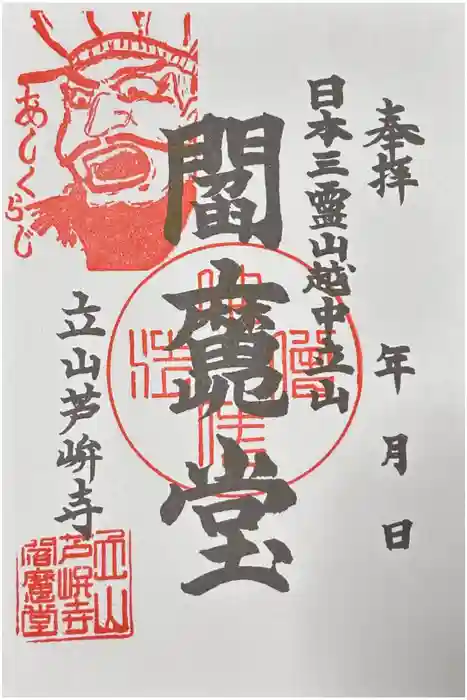 奉拝
年 月 日
日本三霊山越中立山
閻魔堂
立山芦峅寺
あしくらじ
立山
芦峅寺
閻魔堂